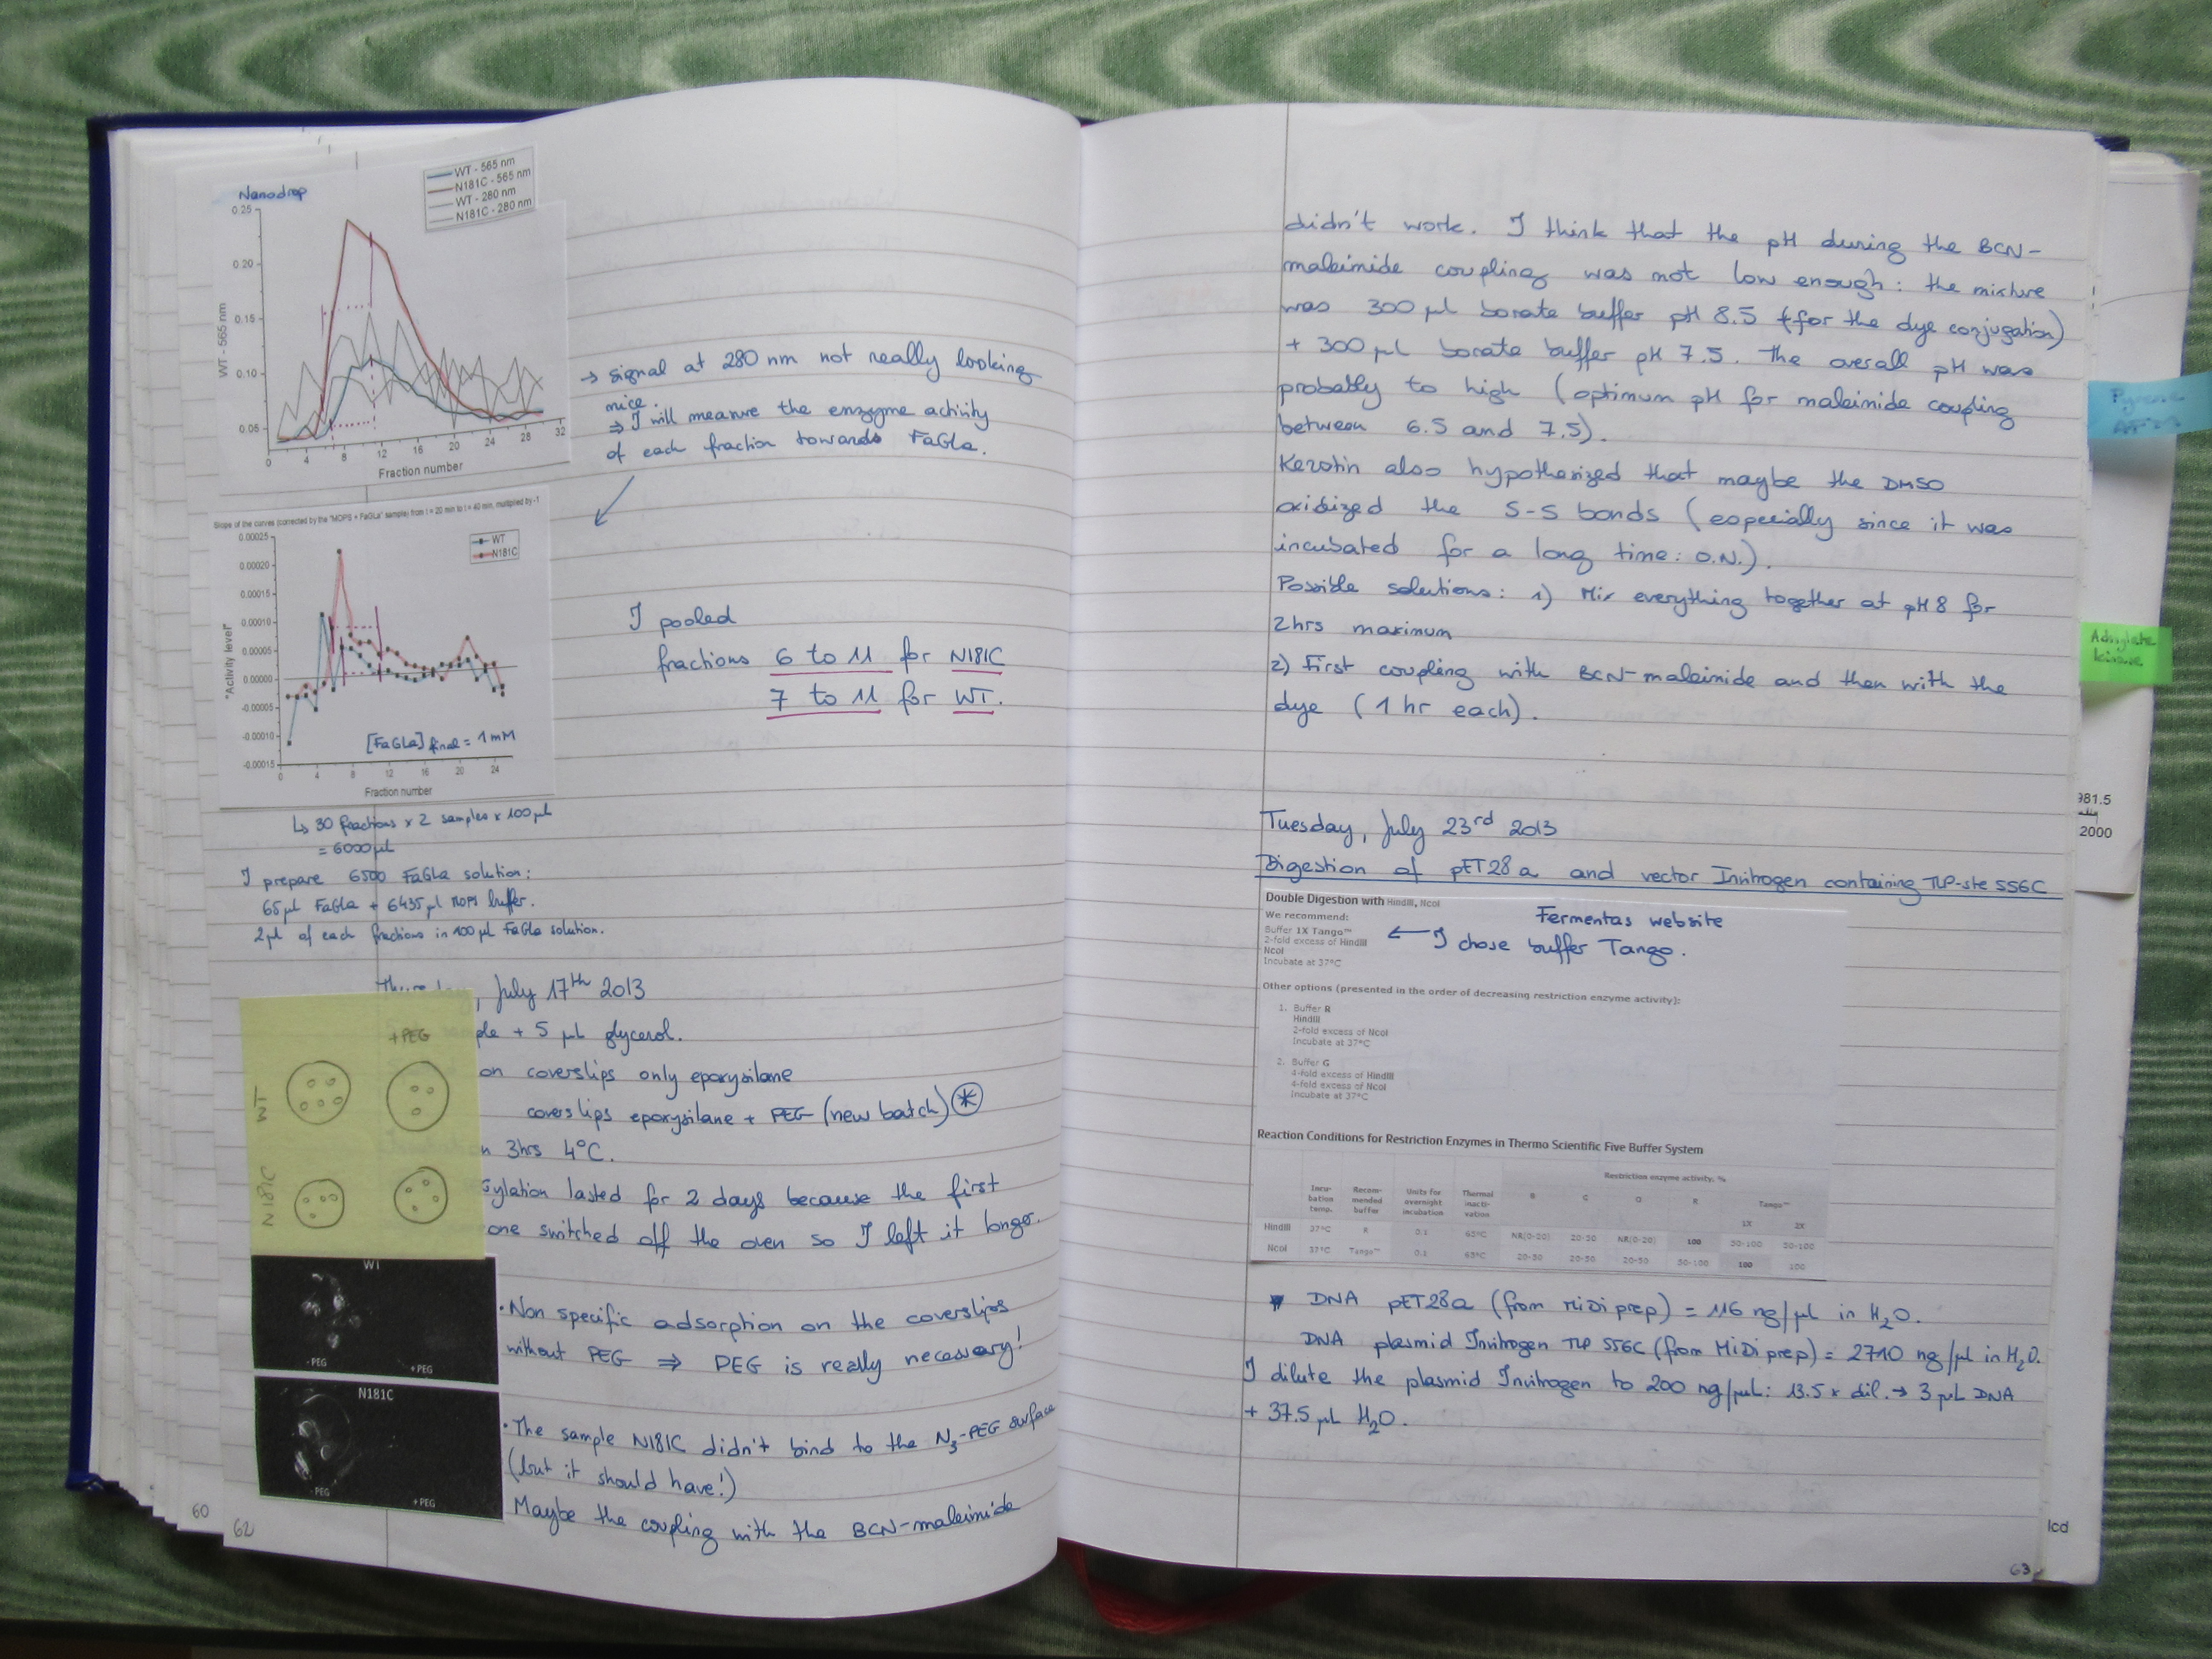 Nanodrop
WT - 565 nm
N181C - 565 nm
WT - 280 nm
N181C - 280 nm
0.25
0.20
0.15
0.10
0.05
WT - 565 nm
0 4 8 12 16 20 24 28 32
Fraction number
→ signal at 280 nm not really looking
nice.
⇒ I will measure the enzyme activity
of each fraction towards FaGla.
Slope of the curves (corrected by the "MOPS + FaGLa" sample) from t = 20 min to t = 40 min, multiplied by -1
WT
N181C
0.00025
0.00020
0.00015
0.00010
0.00005
0.00000
-0.00005
-0.00010
-0.00015
"Activity level"
[FaGLa] final = 1 mM
0 4 8 12 16 20 24
Fraction number
I pooled
fractions 6 to 11 for N181C
7 to 11 for WT.
↳ 30 fractions x 2 samples x 100 µl
= 6000 µl
I prepare 6500 FaGla solution:
65 µl FaGla + 6435 µl MOPS buffer.
2 µl of each fractions in 100 µl FaGla solution.
, July 17th 2013
ple + 5 µL glycerol.
on coverslips only epoxysilane
coverslips epoxysilane + PEG (new batch) *
n 3hrs 4°C.
sylation lasted for 2 days because the first
one switched off the oven so I left it longer.
+ PEG
WT
N181C
WT
- PEG
+ PEG
N181C
- PEG
+ PEG
• Non specific adsorption on the coverslips
without PEG ⇒ PEG is really necessary!
• The sample N181C didn't bind to the N3-PEG surface
(but it should have!)
Maybe the coupling with the BCN-maleimide
60
62
didn't work. I think that the pH during the BCN-
maleimide coupling was not low enough: the mixture
was 300 µl borate buffer pH 8.5 (for the dye conjugation)
+ 300 µl borate buffer pH 7.5. The overall pH was
probably to high (optimum pH for maleimide coupling
between 6.5 and 7.5).
Kerstin also hypothesized that maybe the DMSO
oxidized the S-S bonds (especially since it was
incubated for a long time: O.N.).
Possible solutions: 1) Mix everything together at pH 8 for
2hrs maximum
2) First coupling with BCN-maleimide and then with the
dye (1 hr each).
Tuesday, July 23rd 2013
Digestion of pET28a and vector Invitrogen containing TLP-ste S56C
Double Digestion with HindIII, NcoI
We recommend:
Buffer 1X Tango™
2-fold excess of HindIII
NcoI
Incubate at 37°C
Fermentas website
← I chose buffer Tango.
Other options (presented in the order of decreasing restriction enzyme activity):
1. Buffer R
HindIII
2-fold excess of NcoI
Incubate at 37°C
2. Buffer G
4-fold excess of HindIII
4-fold excess of NcoI
Incubate at 37°C
Reaction Conditions for Restriction Enzymes in Thermo Scientific Five Buffer System
Incu-bation temp. Recom-mended buffer Units for overnight incubation Thermal inacti-vation Restriction enzyme activity, %
B G O R Tango™
1X 2X
HindIII 37°C R 0.1 65°C NR(0-20) 20-50 NR(0-20) 100 50-100 50-100
NcoI 37°C Tango™ 0.1 65°C 20-50 20-50 20-50 50-100 100 100
DNA pET28a (from MiDi prep) = 116 ng/µl in H2O.
DNA plasmid Invitrogen TLP S56C (from MiDi prep) = 2710 ng/µl in H2O.
I dilute the plasmid Invitrogen to 200 ng/µL: 13.5 x dil. → 3 µL DNA
+ 37.5 µL H2O.
63
Adenylate
kinase
981.5
2000
lcd